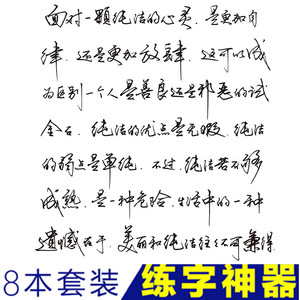 面对一颗纯洁的心灵，是更加自
律，还是更加放肆，这可以成
为区别一个人是善良还是邪恶的试
金石，纯洁的优点是无暇，纯洁
的弱点是单纯，不过，纯洁若不够
成熟，是一种危险，生活中的一种
遗憾在于，美丽和纯洁往往不可兼得
8本套装 练字神器